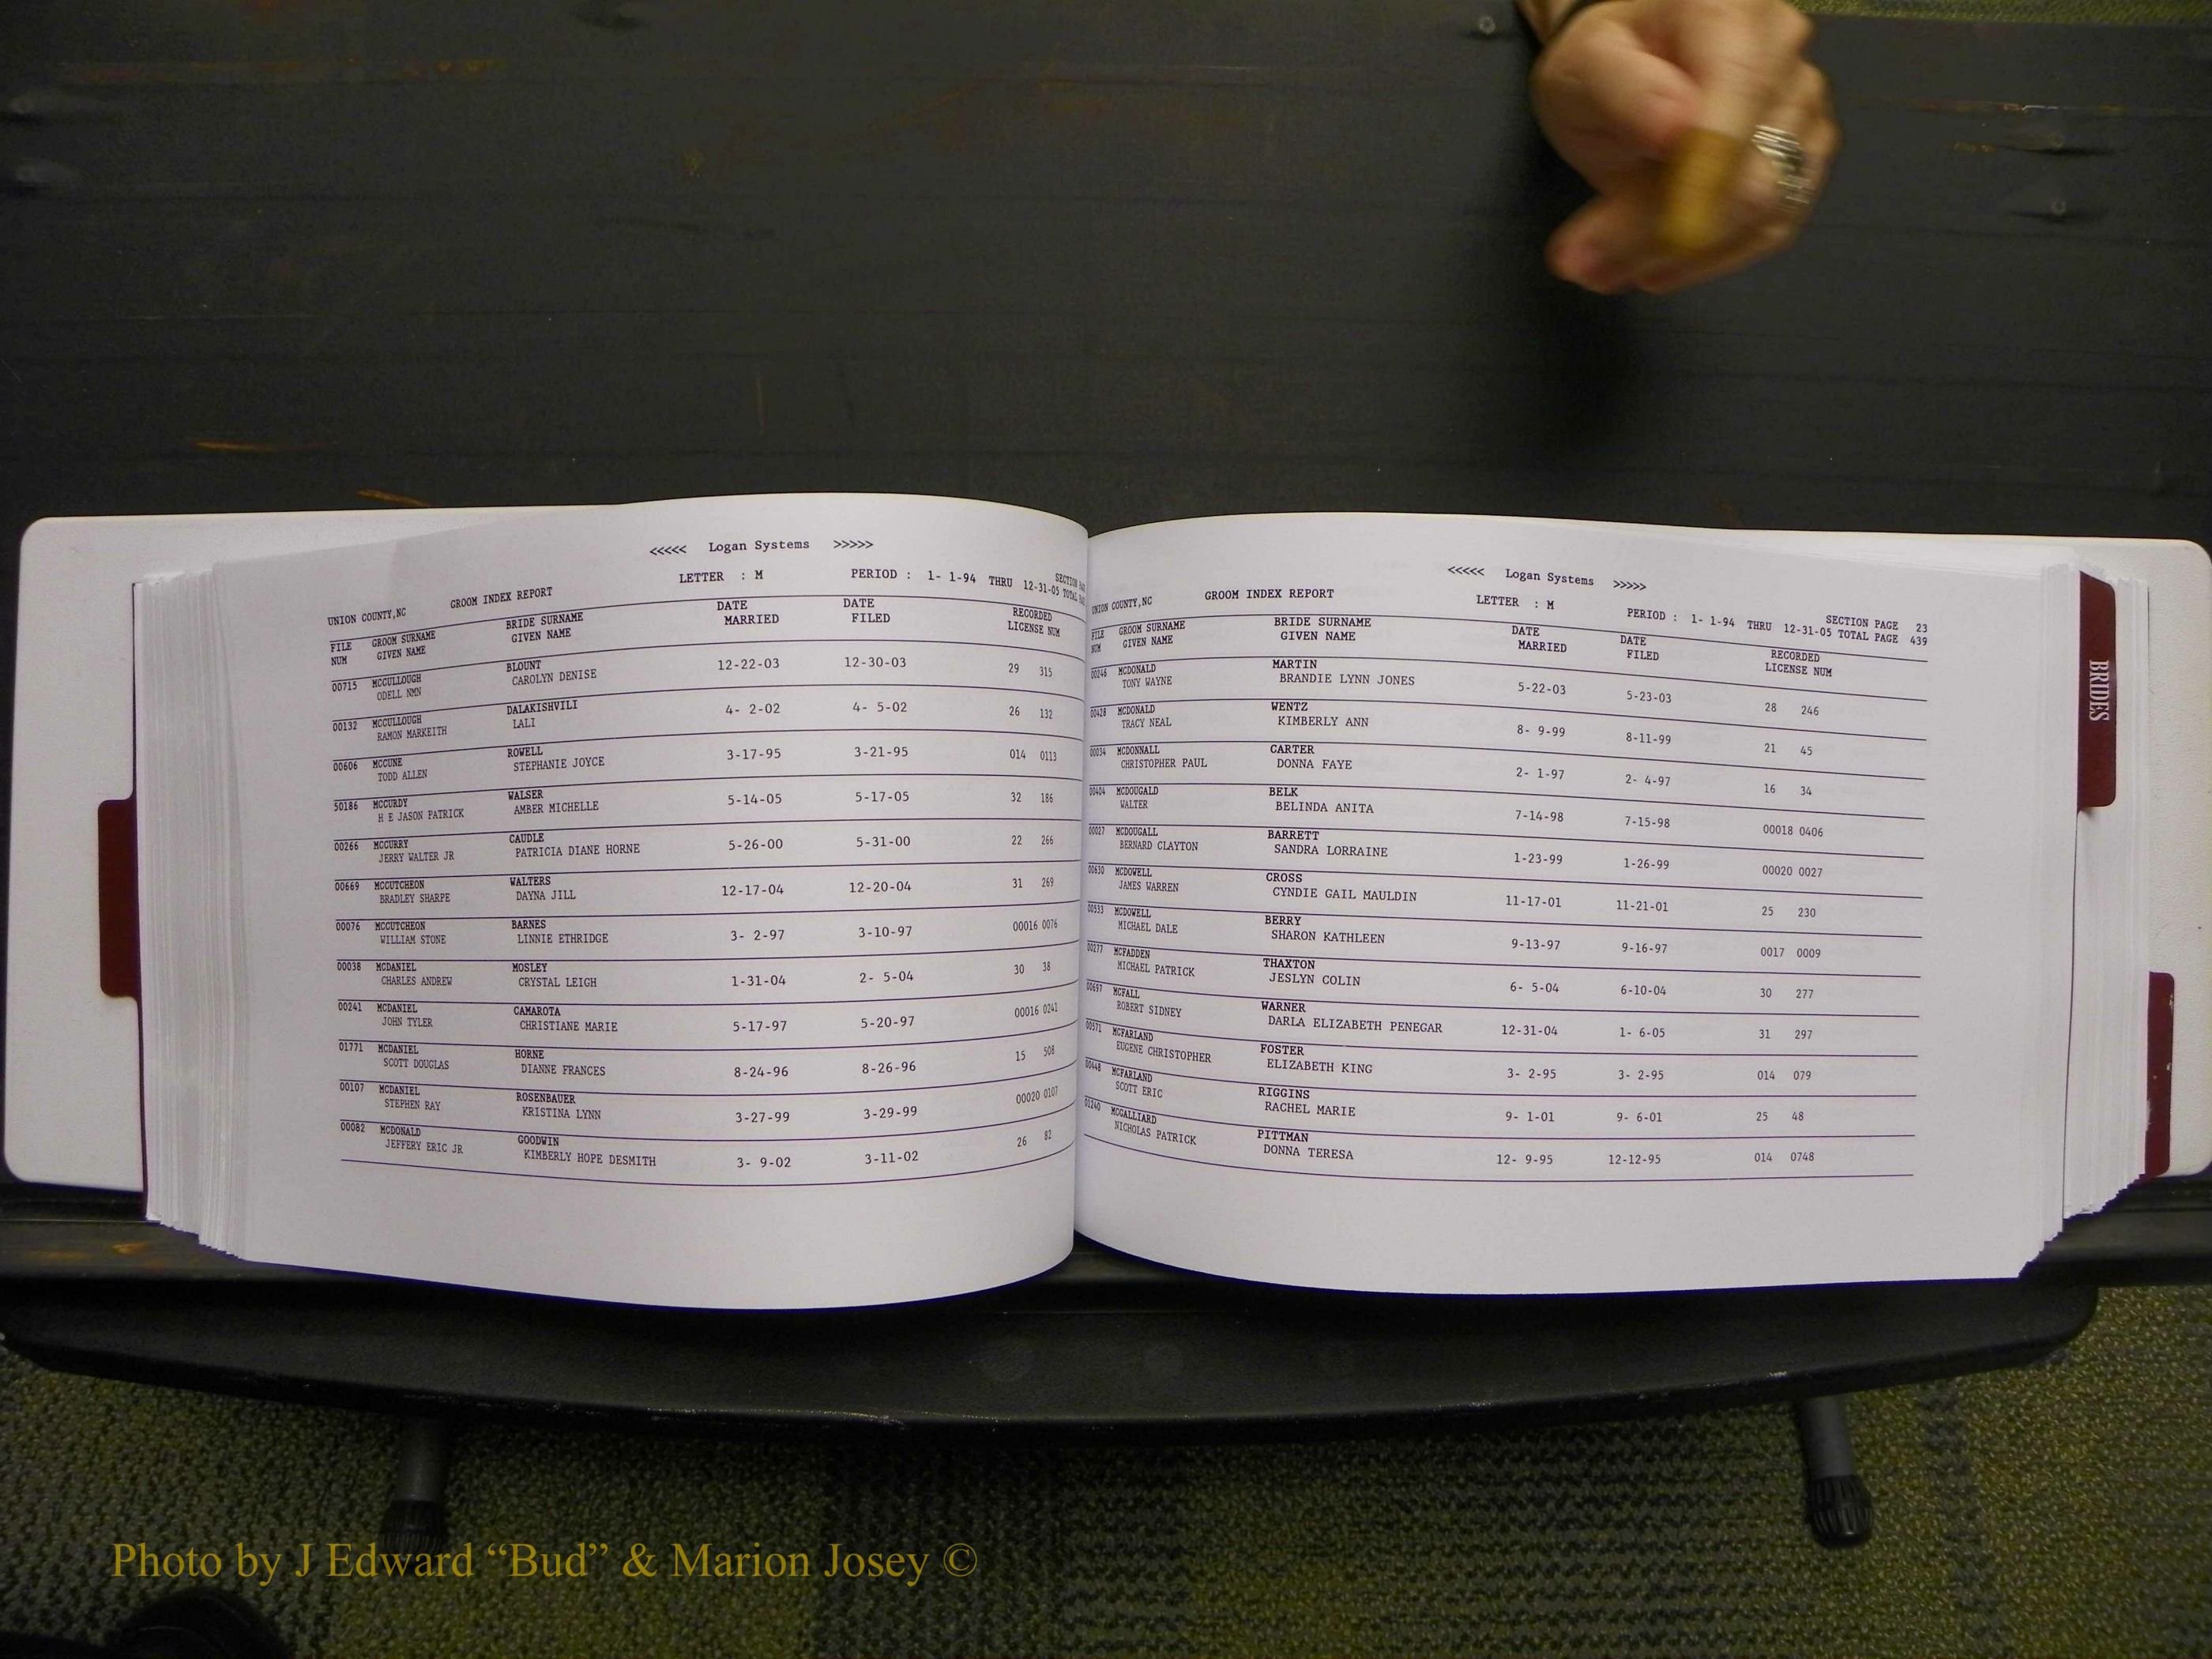 <<<<< Logan Systems >>>>>
LETTER : M PERIOD : 1- 1-94 THRU 12-31-05 TOTAL
SECTION
UNION COUNTY,NC GROOM INDEX REPORT
FILE GROOM SURNAME BRIDE SURNAME DATE DATE RECORDED
NUM GIVEN NAME GIVEN NAME MARRIED FILED LICENSE NUM
00715 MCCULLOUGH BLOUNT 12-22-03 12-30-03 29 315
ODELL NMN CAROLYN DENISE
00132 MCCULLOUGH DALAKISHVILI 4- 2-02 4- 5-02 26 132
RAMON MARKEITH LALI
00606 MCCUNE ROWELL 3-17-95 3-21-95 014 0113
TODD ALLEN STEPHANIE JOYCE
50186 MCCURDY WALSER 5-14-05 5-17-05 32 186
H E JASON PATRICK AMBER MICHELLE
00266 MCCURRY CAUDLE 5-26-00 5-31-00 22 266
JERRY WALTER JR PATRICIA DIANE HORNE
00669 MCCUTCHEON WALTERS 12-17-04 12-20-04 31 269
BRADLEY SHARPE DAYNA JILL
00076 MCCUTCHEON BARNES 3- 2-97 3-10-97 00016 0076
WILLIAM STONE LINNIE ETHRIDGE
00038 MCDANIEL MOSLEY 1-31-04 2- 5-04 30 38
CHARLES ANDREW CRYSTAL LEIGH
00241 MCDANIEL CAMAROTA 5-17-97 5-20-97 00016 0241
JOHN TYLER CHRISTIANE MARIE
01771 MCDANIEL HORNE 8-24-96 8-26-96 15 508
SCOTT DOUGLAS DIANNE FRANCES
00107 MCDANIEL ROSENBAUER 3-27-99 3-29-99 00020 0107
STEPHEN RAY KRISTINA LYNN
00082 MCDONALD GOODWIN 3- 9-02 3-11-02 26 82
JEFFERY ERIC JR KIMBERLY HOPE DESMITH
<<<<< Logan Systems >>>>>
UNION COUNTY,NC GROOM INDEX REPORT LETTER : M PERIOD : 1- 1-94 THRU 12-31-05 TOTAL PAGE 439
SECTION PAGE 23
FILE GROOM SURNAME BRIDE SURNAME DATE DATE RECORDED
NUM GIVEN NAME GIVEN NAME MARRIED FILED LICENSE NUM
00246 MCDONALD MARTIN 5-22-03 5-23-03 28 246
TONY WAYNE BRANDIE LYNN JONES
00428 MCDONALD WENTZ 8- 9-99 8-11-99 21 45
TRACY NEAL KIMBERLY ANN
00034 MCDONNALL CARTER 2- 1-97 2- 4-97 16 34
CHRISTOPHER PAUL DONNA FAYE
00404 MCDOUGALD BELK 7-14-98 7-15-98 00018 0406
WALTER BELINDA ANITA
00027 MCDOUGALL BARRETT 1-23-99 1-26-99 00020 0027
BERNARD CLAYTON SANDRA LORRAINE
00630 MCDOWELL CROSS 11-17-01 11-21-01 25 230
JAMES WARREN CYNDIE GAIL MAULDIN
00533 MCDOWELL BERRY 9-13-97 9-16-97 0017 0009
MICHAEL DALE SHARON KATHLEEN
00277 MCFADDEN THAXTON 6- 5-04 6-10-04 30 277
MICHAEL PATRICK JESLYN COLIN
00697 MCFALL WARNER 12-31-04 1- 6-05 31 297
ROBERT SIDNEY DARLA ELIZABETH PENEGAR
00571 MCFARLAND FOSTER 3- 2-95 3- 2-95 014 079
EUGENE CHRISTOPHER ELIZABETH KING
00448 MCFARLAND RIGGINS 9- 1-01 9- 6-01 25 48
SCOTT ERIC RACHEL MARIE
01240 MCGALLIARD PITTMAN 12- 9-95 12-12-95 014 0748
NICHOLAS PATRICK DONNA TERESA
BRIDES
Photo by J Edward “Bud” & Marion Josey ©